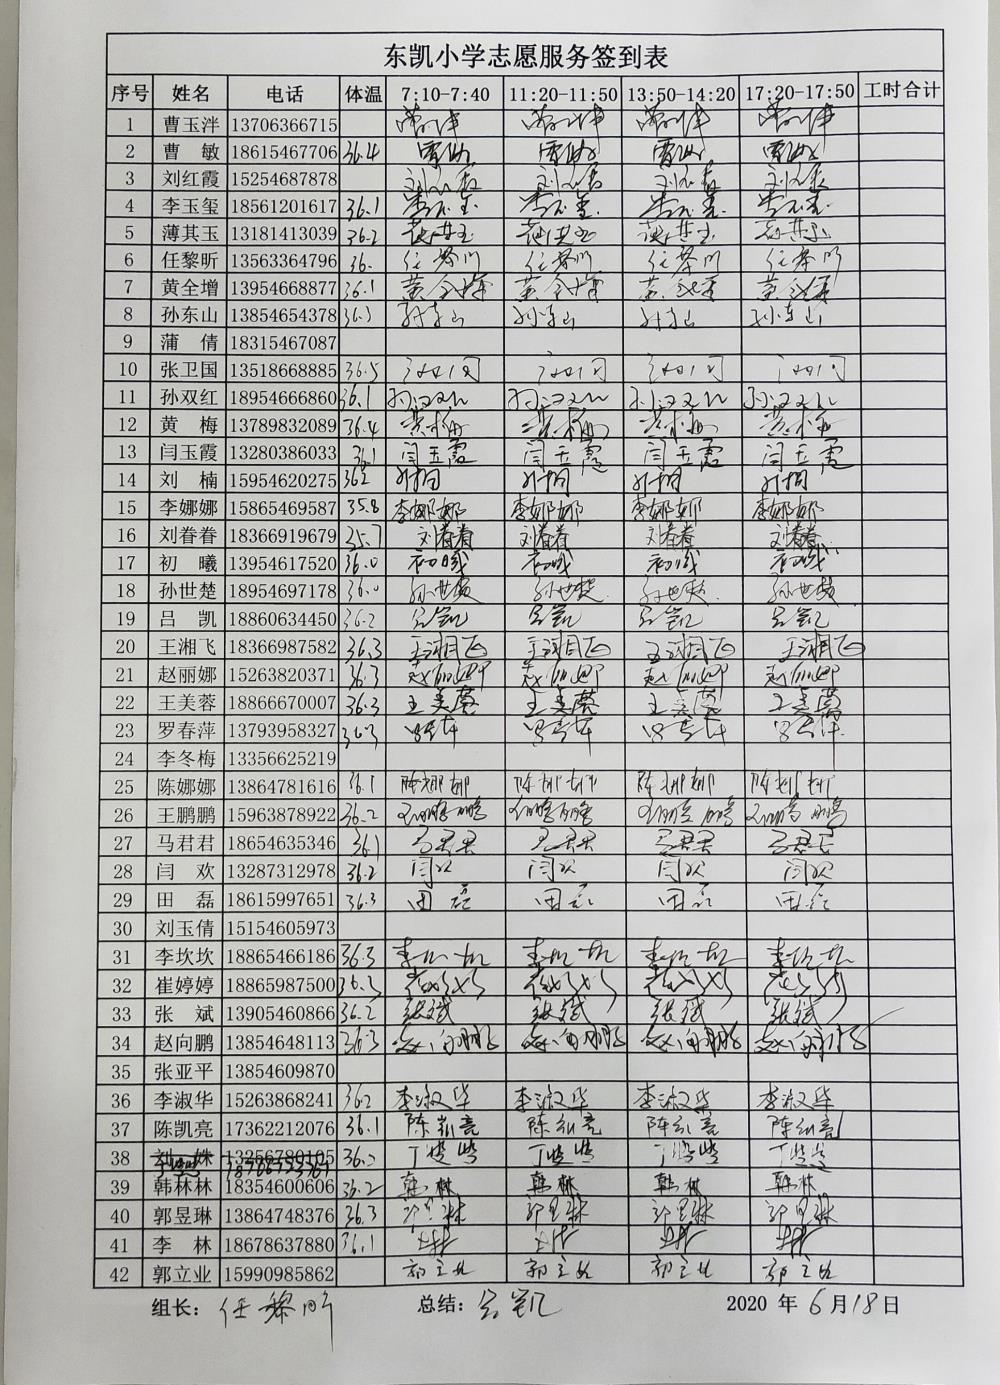 东凯小学志愿服务签到表
序号 姓名 电话 体温 7:10-7:40 11:20-11:50 13:50-14:20 17:20-17:50 工时合计
1 曹玉泮 13706366715
2 曹 敏 18615467706 36.4
3 刘红霞 15254687878 刘红霞 刘红霞 刘红霞 刘红霞
4 李玉玺 18561201617 36.1 李玉玺 李玉玺 李玉玺 李玉玺
5 薄其玉 13181413039 36.2 薄其玉 薄其玉 薄其玉 薄其玉
6 任黎昕 13563364796 36. 任黎昕 任黎昕 任黎昕 任黎昕
7 黄全增 13954668877 36.1 黄全增 黄全增 黄全增 黄全增
8 孙东山 13854654378 36.3 孙东山 孙东山 孙东山 孙东山
9 蒲 倩 18315467087
10 张卫国 13518668885 36.5
11 孙双红 18954666860 36.1 孙双红 孙双红 孙双红 孙双红
12 黄 梅 13789832089 36.4 黄梅 黄梅 黄梅 黄梅
13 闫玉霞 13280386033 36.1 闫玉霞 闫玉霞 闫玉霞 闫玉霞
14 刘 楠 15954620275 362 刘楠 刘楠 刘楠 刘楠
15 李娜娜 15865469587 35.8 李娜娜 李娜娜 李娜娜 李娜娜
16 刘眷眷 18366919679 35.7 刘眷眷 刘眷眷 刘眷眷 刘眷眷
17 初 曦 13954617520 36.0 初曦 初曦 初曦 初曦
18 孙世楚 18954697178 36.0 孙世楚 孙世楚 孙世楚 孙世楚
19 吕 凯 18860634450 36.2 吕凯 吕凯 吕凯 吕凯
20 王湘飞 18366987582 36.3 王湘飞 王湘飞 王湘飞 王湘飞
21 赵丽娜 15263820371 36.3 赵丽娜 赵丽娜 赵丽娜 赵丽娜
22 王美蓉 18866670007 36.3 王美蓉 王美蓉 王美蓉 王美蓉
23 罗春萍 13793958327 36.3 罗春萍 罗春萍 罗春萍 罗春萍
24 李冬梅 13356625219
25 陈娜娜 13864781616 36.1 陈娜娜 陈娜娜 陈娜娜 陈娜娜
26 王鹏鹏 15963878922 36.2 王鹏鹏 王鹏鹏 王鹏鹏 王鹏鹏
27 马君君 18654635346 36.1 马君君 马君君 马君君 马君君
28 闫 欢 13287312978 36.2 闫欢 闫欢 闫欢 闫欢
29 田 磊 18615997651 36.3 田磊 田磊 田磊 田磊
30 刘玉倩 15154605973
31 李坎坎 18865466186 36.3 李坎坎 李坎坎 李坎坎 李坎坎
32 崔婷婷 18865987500 36.3
33 张 斌 13905460866 36.2 张斌 张斌 张斌 张斌
34 赵向鹏 13854648113 36.3 赵向鹏 赵向鹏 赵向鹏 赵向鹏
35 张亚平 13854609870
36 李淑华 15263868241 36.2 李淑华 李淑华 李淑华 李淑华
37 陈凯亮 17362212076 36.1 陈凯亮 陈凯亮 陈凯亮 陈凯亮
38 刘 姝 13256780105
39 韩林林 18354600606 36.2 韩林 韩林 韩林 韩林
40 郭昱琳 13864748376 36.3 郭昱琳 郭昱琳 郭昱琳 郭昱琳
41 李 林 18678637880 36.1 李林 李林 李林 李林
42 郭立业 15990985862 郭立业 郭立业 郭立业 郭立业
组长： 任黎昕 总结： 吕凯 2020 年 6 月 18 日